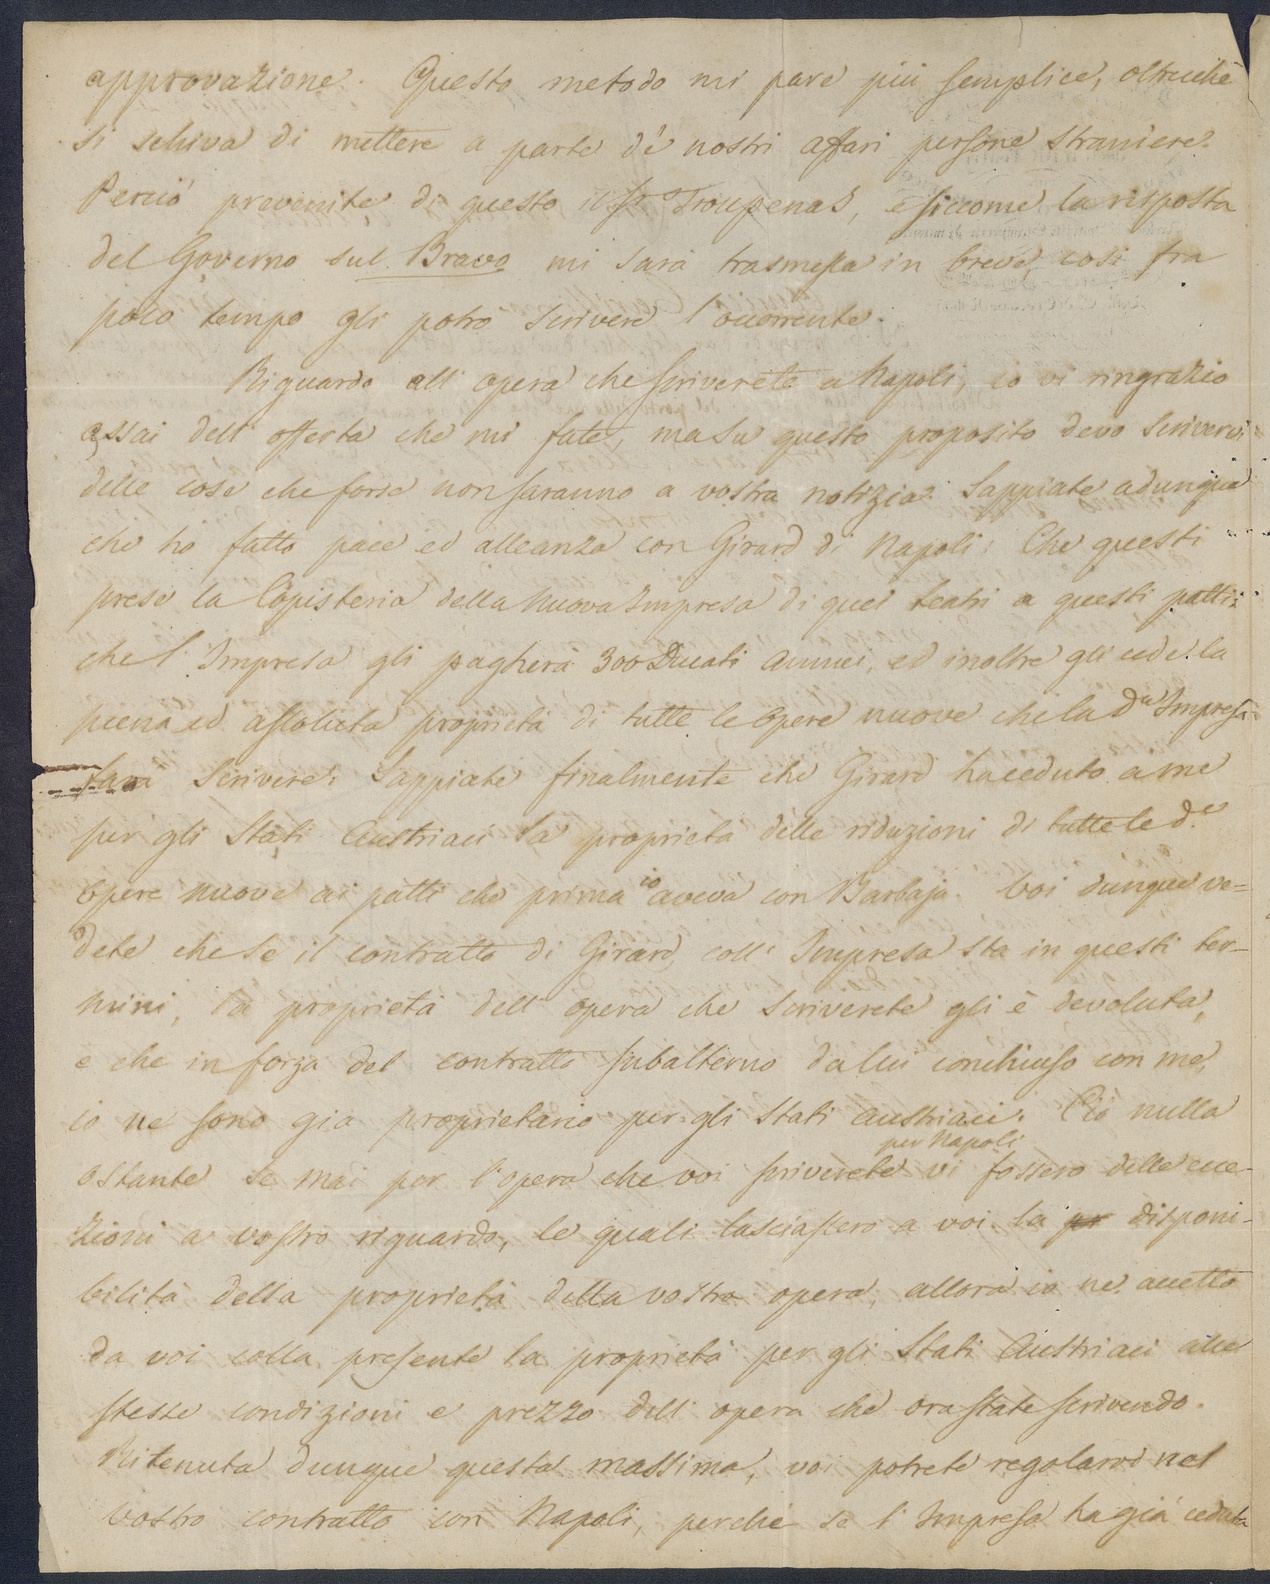 approvazione. Questo metodo mi pare più semplice, oltrecchè
si schiva di mettere a parte de' nostri affari persone straniere.
Perciò prevenite di questo il Sr Troupenas, e siccome la risposta
del Governo sul Bravo mi sarà trasmessa in breve, così fra
poco tempo gli potrò scrivere l'occorrente.
Riguardo all'opera che scriverete a Napoli, io vi ringrazio
assai dell'offerta che mi fate, ma su questo proposito devo scrivervi
delle cose che forse non saranno a vostra notizia. Sappiate adunque
che ho fatto pace ed alleanza con Girard di Napoli; Che questi
prese la Copisteria della nuova Impresa di quei teatri a questi patti:
che l'Impresa gli pagherà 300 Ducati annui, ed inoltre gli cede la
piena ed assoluta proprietà di tutte le Opere nuove che la Da Impresa
farà scrivere; Sappiate finalmente che Girard ha ceduto a me
per gli Stati Austriaci la proprietà delle riduzioni di tutte le d.e
Opere nuove ai patti che prima io aveva con Barbaja. Voi dunque ve=
dete che se il contratto di Girard coll'Impresa sta in questi ter-
mini, la proprietà dell'opera che scriverete gli è devoluta,
e che in forza del contratto subalterno da lui conchiuso con me,
io ne sono già proprietario per gli Stati austriaci. Ciò nulla
ostante se mai per l'opera che voi scriverete per Napoli vi fossero delle ecce-
zioni a vostro riguardo, le quali lasciassero a voi la pr disponi-
bilità della proprietà della vostra opera, allora io ne accetto
da voi colla presente la proprietà per gli Stati Austriaci alle
stesse condizioni e prezzo dell'opera che ora state scrivendo.
Ritenuta dunque questa massima, voi potrete regolarvi nel
vostro contratto con Napoli, perchè se l'Impresa ha già ceduta